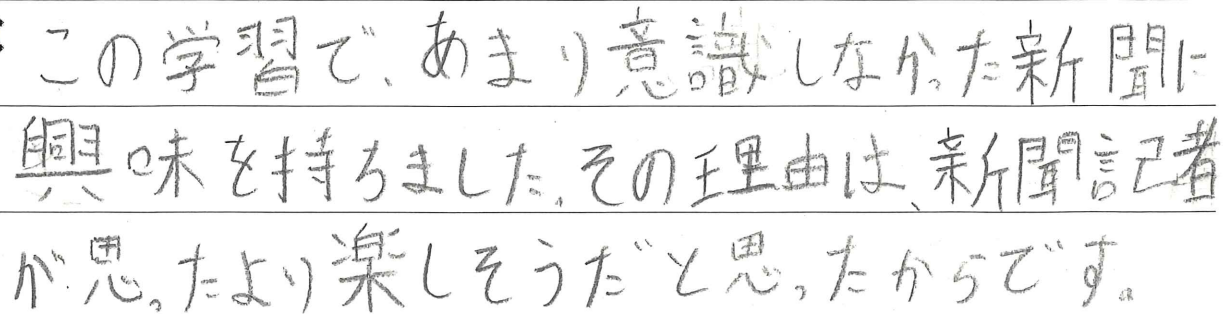 この学習で、あまり意識しなかった新聞に
興味を持ちました。その理由は、新聞記者
が思ったより楽しそうだと思ったからです。